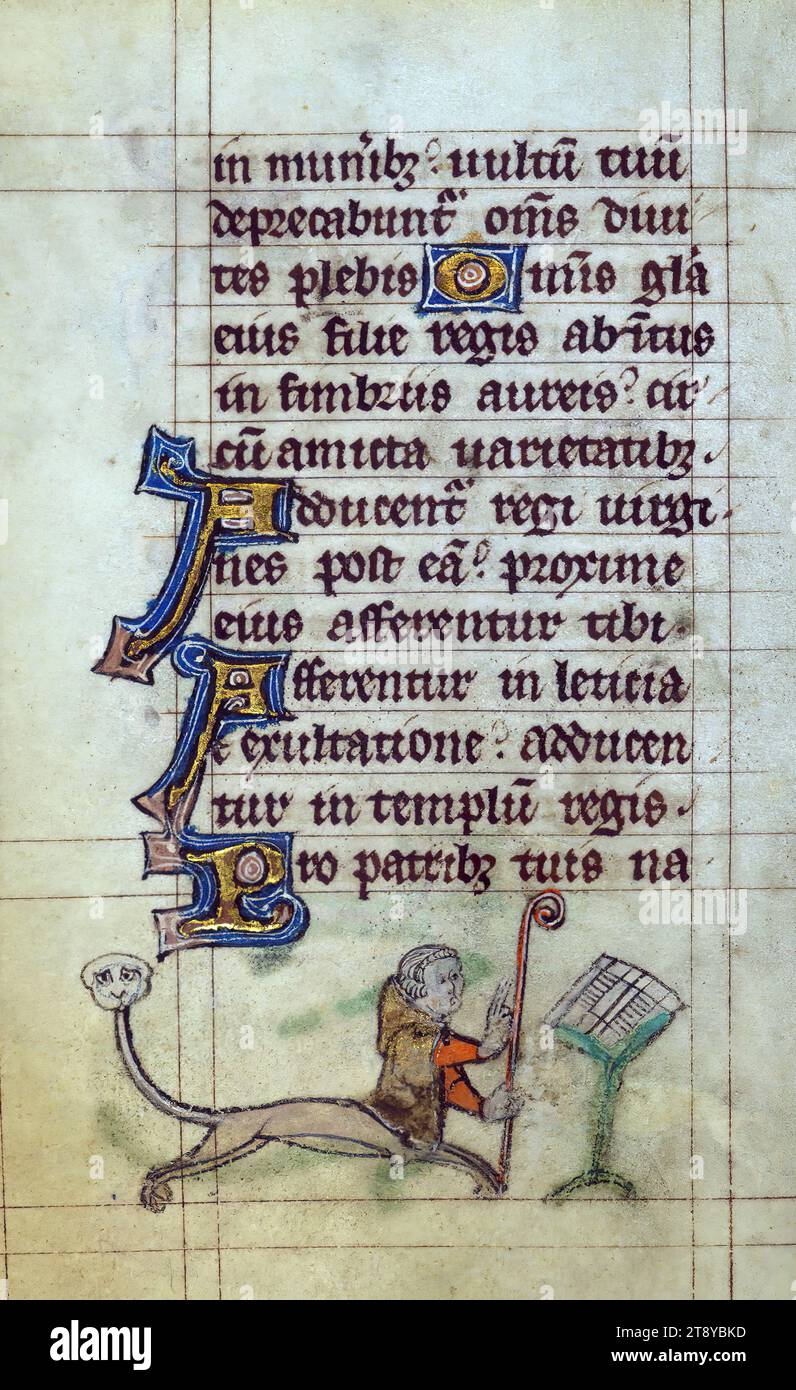 in mun᷑ibꝫ? uultū tuū
deprecabunt᷑ om̄s diui
tes plebis Om̄is gl̄a
eius filie regis ab ītus
in fimbriis aureis? cir
cū amicta uarietatibꝫ.
Adducent᷑ regi uirgi
nes post eā? proxime
eius afferentur tibi.
Afferentur in leticia
⁊ exultatione? adducen
tur in templū regis.
Pro patribꝫ tuis na
alamy
alamy
Image ID: 2T8YBKD
www.alamy.com